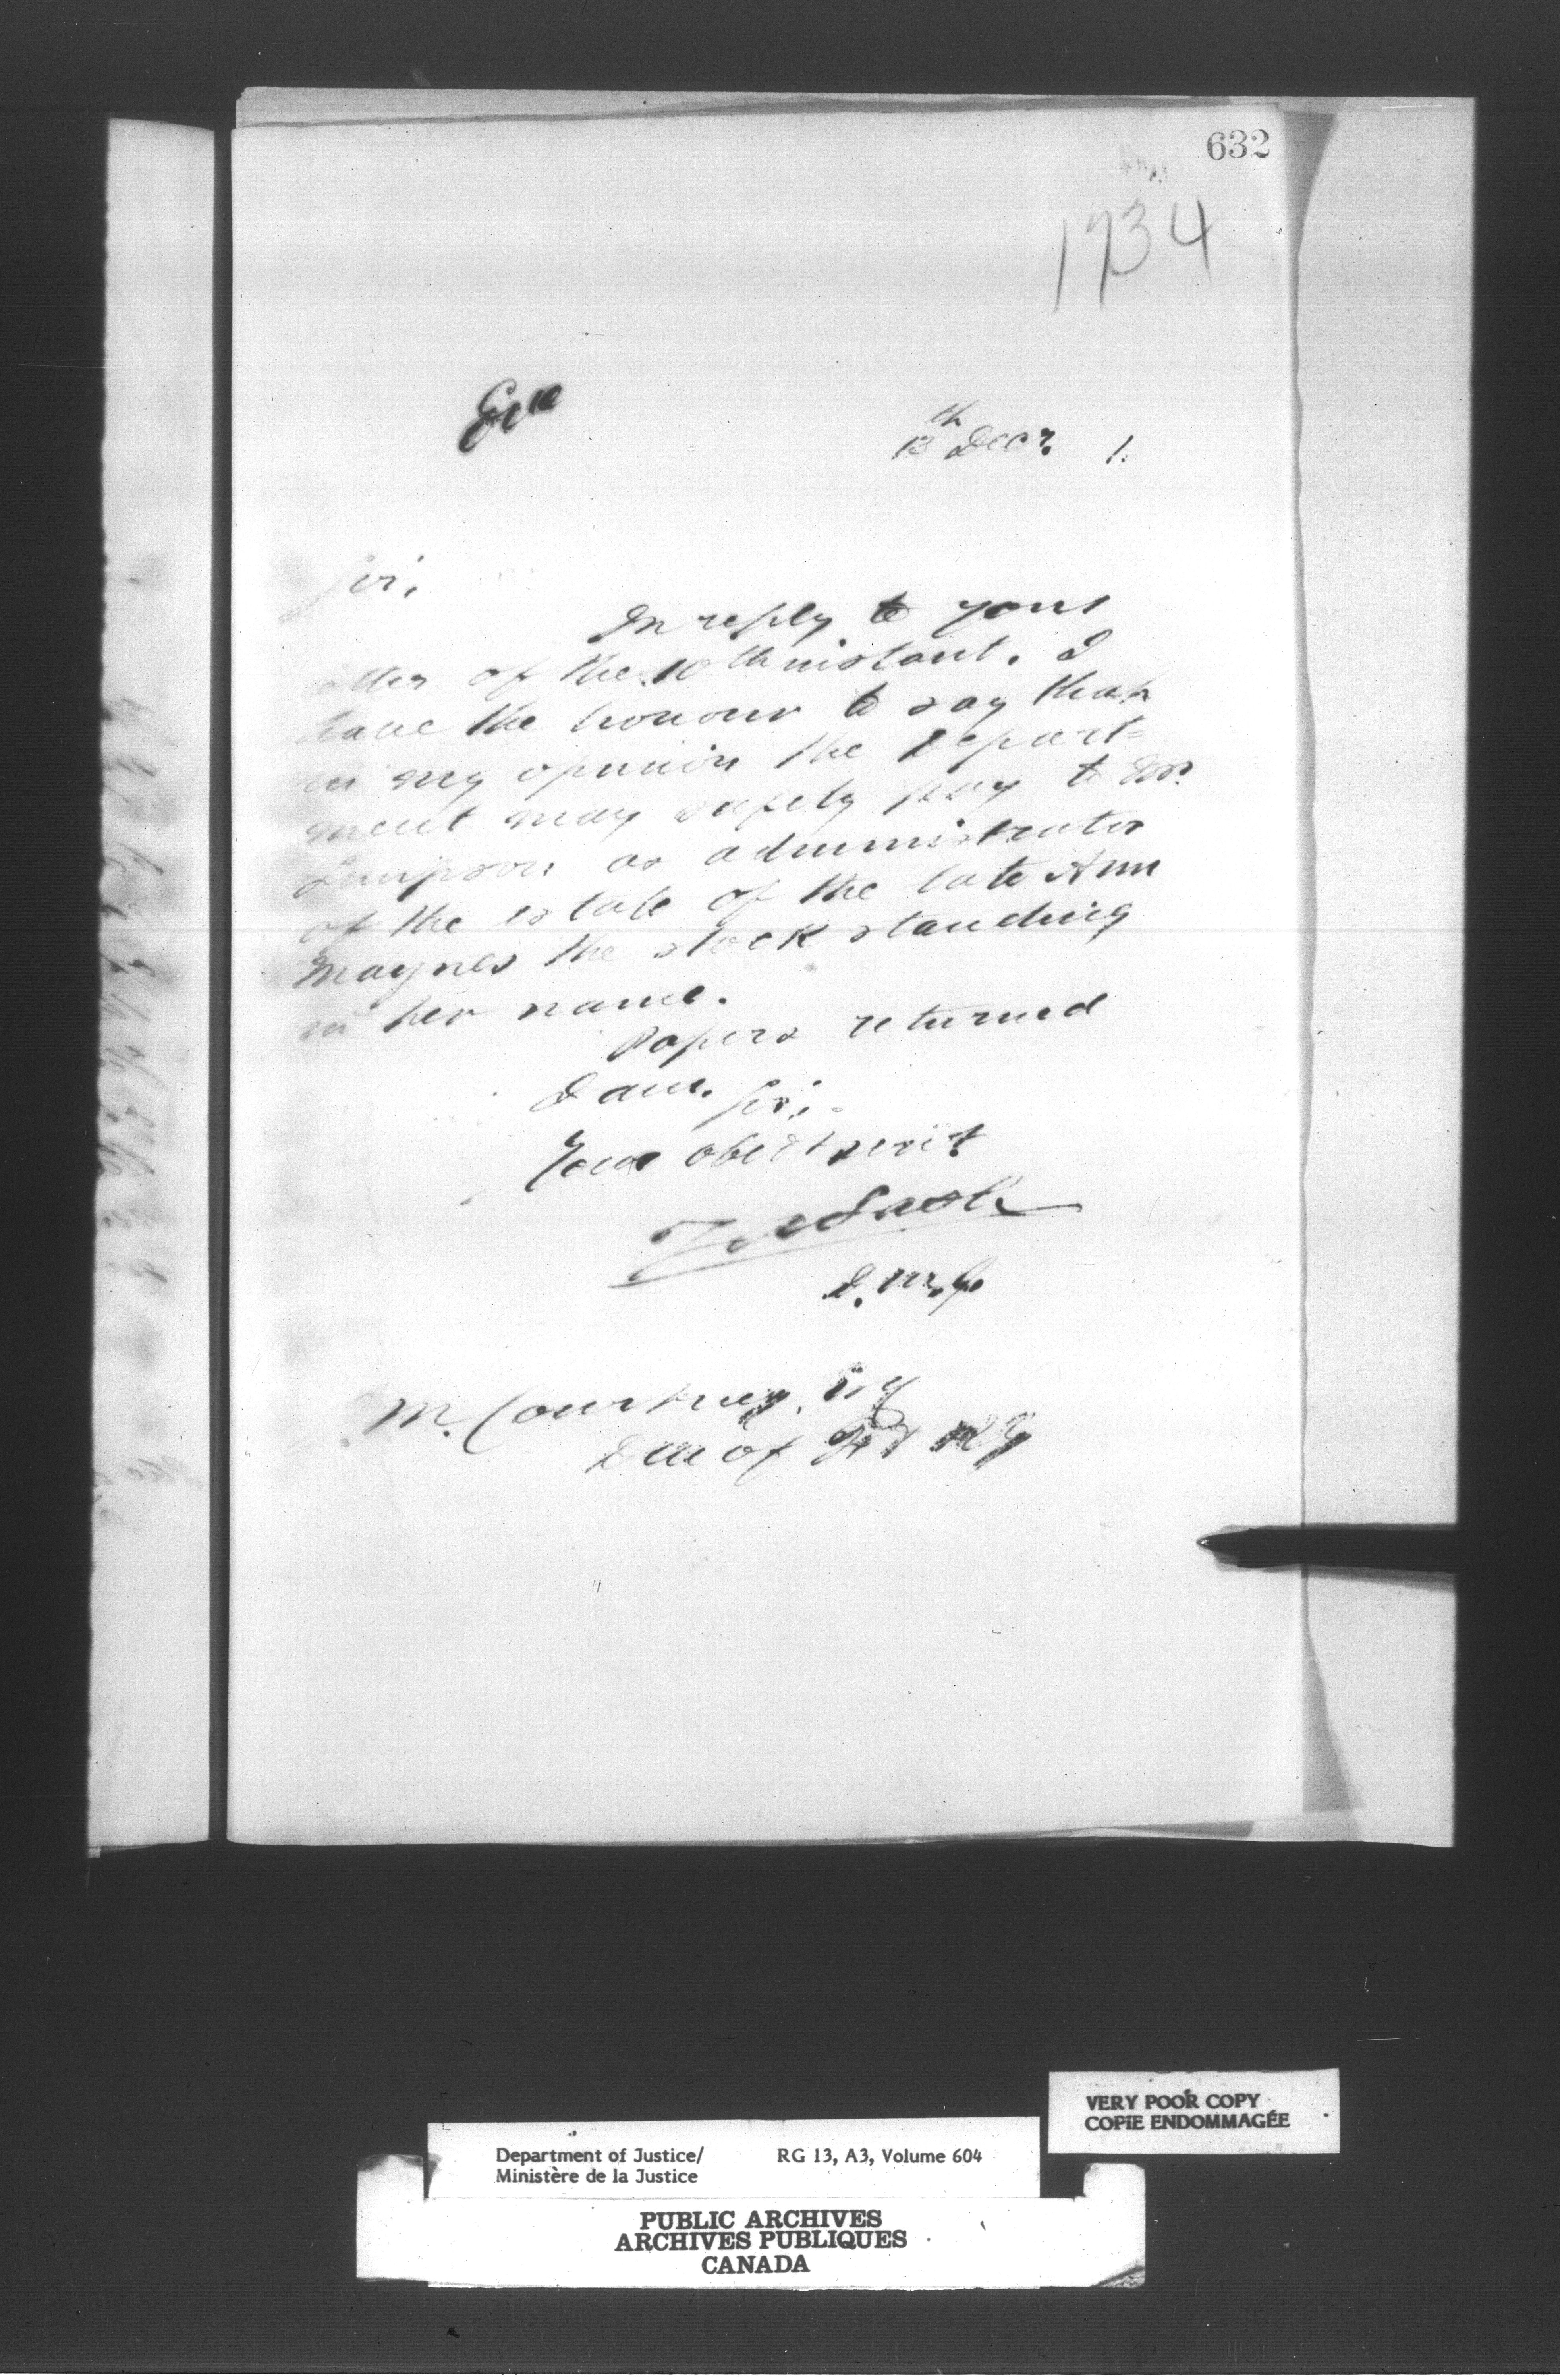 632
1734
13th Decr. 1.
Sir,
In reply to your
letter of the 10th instant. I
have the honour to say that
in my opinion the Depart=
ment may safely pay to Mr.
Simpson as administrator
of the estate of the late Ann
Maynes the stock standing
in her name.
Papers returned
I am. Sir,
Your obedt servt
Z A Lash
D. M. J.
M. Courtney. Esq
D M of
VERY POOR COPY
COPIE ENDOMMAGÉE
Department of Justice/ RG 13, A3, Volume 604
Ministère de la Justice
PUBLIC ARCHIVES
ARCHIVES PUBLIQUES
CANADA